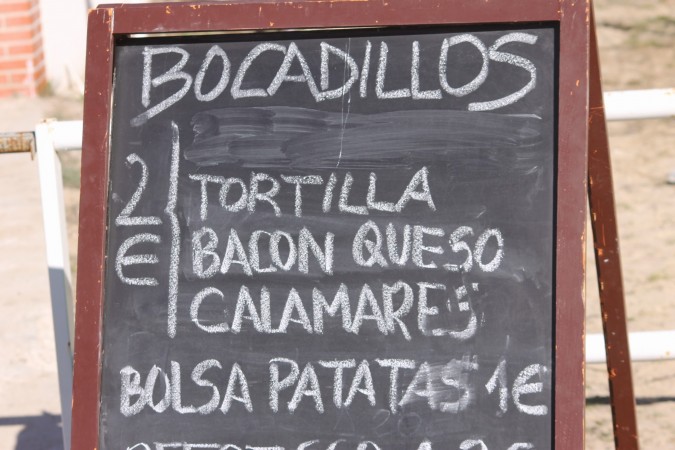 BOCADILLOS
2€ TORTILLA
BACON QUESO
CALAMARES
BOLSA PATATAS 1€